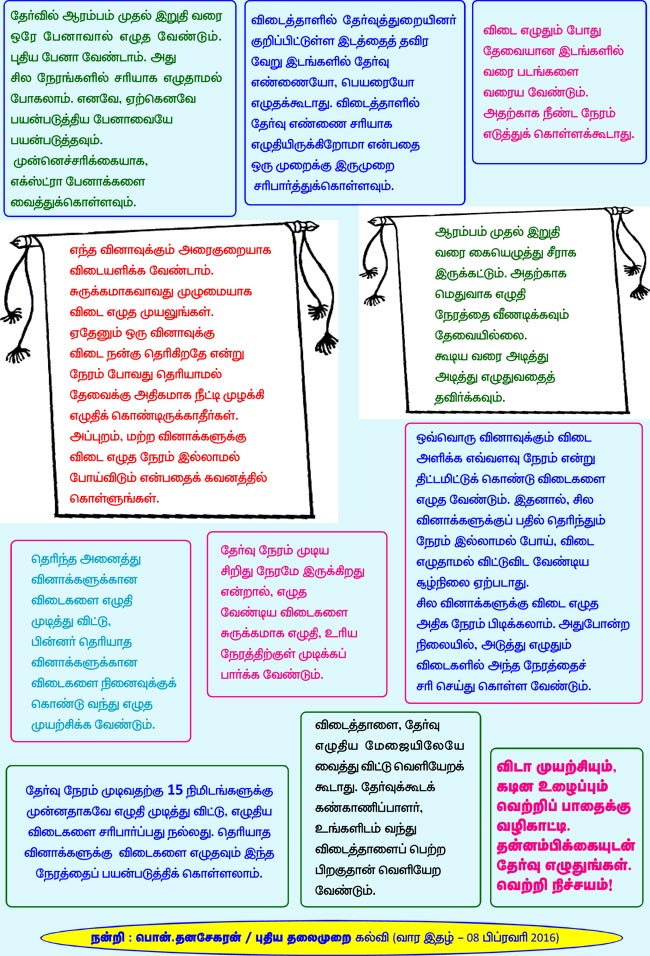 தேர்வில் ஆரம்பம் முதல் இறுதி வரை
ஒரே பேனாவால் எழுத வேண்டும்.
புதிய பேனா வேண்டாம். அது
சில நேரங்களில் சரியாக எழுதாமல்
போகலாம். எனவே, ஏற்கெனவே
பயன்படுத்திய பேனாவையே
பயன்படுத்தவும்.
முன்னெச்சரிக்கையாக,
எக்ஸ்ட்ரா பேனாக்களை
வைத்துக்கொள்ளவும்.
விடைத்தாளில் தேர்வுத்துறையினர்
குறிப்பிட்டுள்ள இடத்தைத் தவிர
வேறு இடங்களில் தேர்வு
எண்ணையோ, பெயரையோ
எழுதக்கூடாது. விடைத்தாளில்
தேர்வு எண்ணை சரியாக
எழுதியிருக்கிறோமா என்பதை
ஒரு முறைக்கு இருமுறை
சரிபார்த்துக்கொள்ளவும்.
விடை எழுதும் போது
தேவையான இடங்களில்
வரை படங்களை
வரைய வேண்டும்.
அதற்காக நீண்ட நேரம்
எடுத்துக் கொள்ளக்கூடாது.
எந்த வினாவுக்கும் அரைகுறையாக
விடையளிக்க வேண்டாம்.
சுருக்கமாகவாவது முழுமையாக
விடை எழுத முயலுங்கள்.
ஏதேனும் ஒரு வினாவுக்கு
விடை நன்கு தெரிகிறதே என்று
நேரம் போவது தெரியாமல்
தேவைக்கு அதிகமாக நீட்டி முழக்கி
எழுதிக் கொண்டிருக்காதீர்கள்.
அப்புறம், மற்ற வினாக்களுக்கு
விடை எழுத நேரம் இல்லாமல்
போய்விடும் என்பதைக் கவனத்தில்
கொள்ளுங்கள்.
ஆரம்பம் முதல் இறுதி
வரை கையெழுத்து சீராக
இருக்கட்டும். அதற்காக
மெதுவாக எழுதி
நேரத்தை வீணடிக்கவும்
தேவையில்லை.
கூடிய வரை அடித்து
அடித்து எழுதுவதைத்
தவிர்க்கவும்.
ஒவ்வொரு வினாவுக்கும் விடை
அளிக்க எவ்வளவு நேரம் என்று
திட்டமிட்டுக் கொண்டு விடைகளை
எழுத வேண்டும். இதனால், சில
வினாக்களுக்குப் பதில் தெரிந்தும்
நேரம் இல்லாமல் போய், விடை
எழுதாமல் விட்டுவிட வேண்டிய
சூழ்நிலை ஏற்படாது.
சில வினாக்களுக்கு விடை எழுத
அதிக நேரம் பிடிக்கலாம். அதுபோன்ற
நிலையில், அடுத்து எழுதும்
விடைகளில் அந்த நேரத்தைச்
சரி செய்து கொள்ள வேண்டும்.
தெரிந்த அனைத்து
வினாக்களுக்கான
விடைகளை எழுதி
முடித்து விட்டு,
பின்னர் தெரியாத
வினாக்களுக்கான
விடைகளை நினைவுக்குக்
கொண்டு வந்து எழுத
முயற்சிக்க வேண்டும்.
தேர்வு நேரம் முடிய
சிறிது நேரமே இருக்கிறது
என்றால், எழுத
வேண்டிய விடைகளை
சுருக்கமாக எழுதி, உரிய
நேரத்திற்குள் முடிக்கப்
பார்க்க வேண்டும்.
தேர்வு நேரம் முடிவதற்கு 15 நிமிடங்களுக்கு
முன்னதாகவே எழுதி முடித்து விட்டு, எழுதிய
விடைகளை சரிபார்ப்பது நல்லது. தெரியாத
வினாக்களுக்கு விடைகளை எழுதவும் இந்த
நேரத்தைப் பயன்படுத்திக் கொள்ளலாம்.
விடைத்தாளை, தேர்வு
எழுதிய மேஜையிலேயே
வைத்து விட்டு வெளியேறக்
கூடாது. தேர்வுக்கூடக்
கண்காணிப்பாளர்,
உங்களிடம் வந்து
விடைத்தாளைப் பெற்ற
பிறகுதான் வெளியேற
வேண்டும்.
விடா முயற்சியும்,
கடின உழைப்பும்
வெற்றிப் பாதைக்கு
வழிகாட்டி.
தன்னம்பிக்கையுடன்
தேர்வு எழுதுங்கள்.
வெற்றி நிச்சயம்!
நன்றி : பொன்.தனசேகரன் / புதிய தலைமுறை கல்வி (வார இதழ் – 08 பிப்ரவரி 2016)